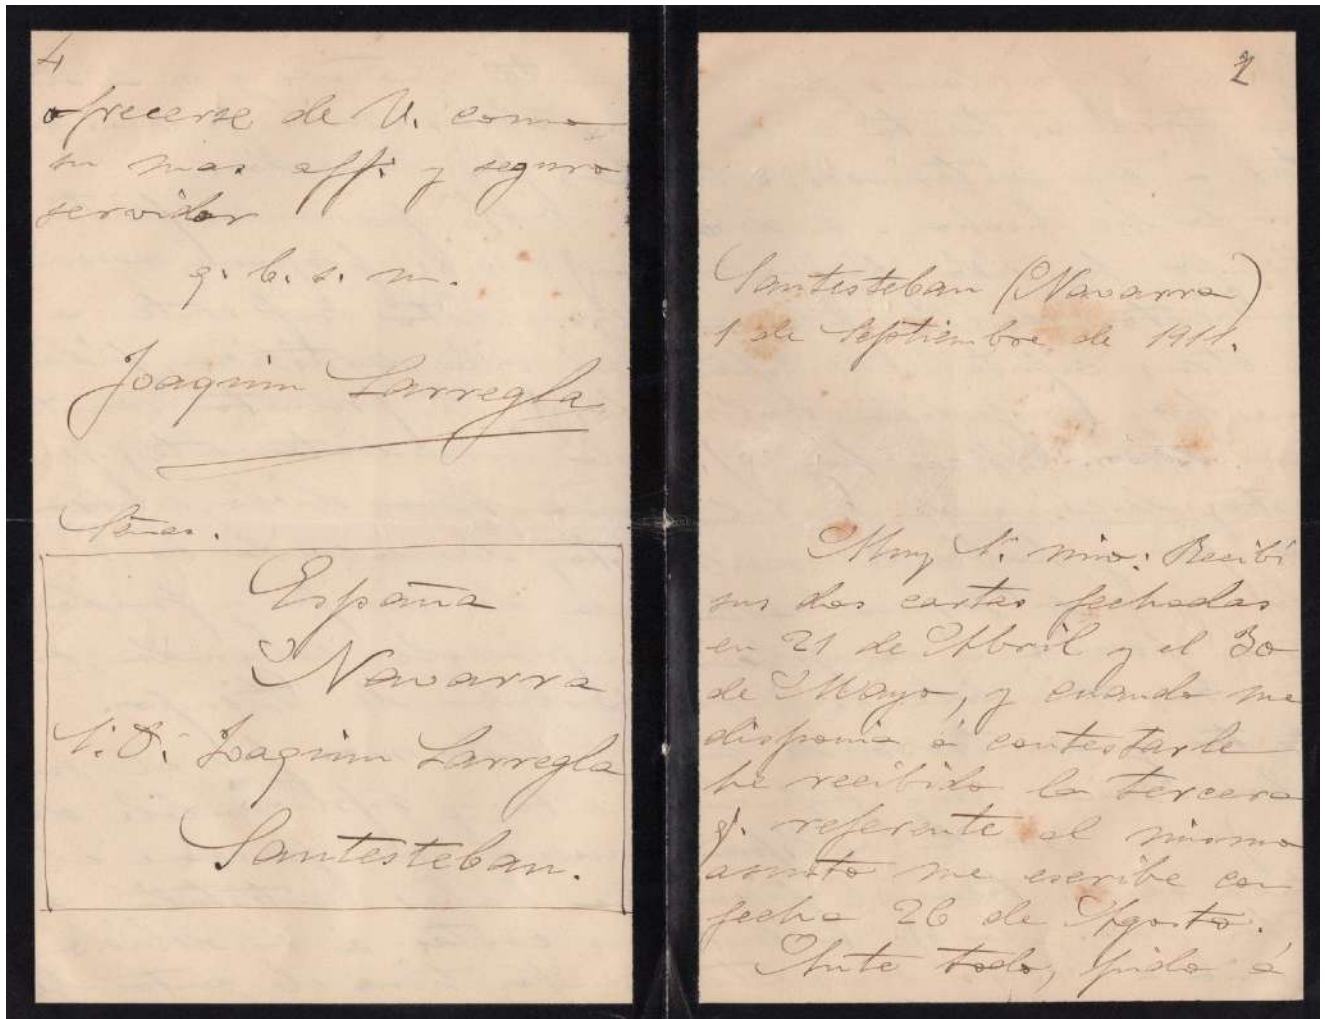 4
ofrecerse de V. como
su mas aff. y seguro
servidor
q. b. s. m.
Joaquin Larregla
Señas.
España
Navarra
S. D. Joaquin Larregla
Santesteban.
1
Santesteban (Navarra)
1 de Septiembre de 1911.
Muy S. mio: Recibí
sus dos cartas fechadas
en 21 de Abril y el 30
de Mayo, y cuando me
disponia á contestarle
he recibido la tercera
q. referente al mismo
asunto me escribe con
fecha 26 de Agosto.
Ante todo, pido á